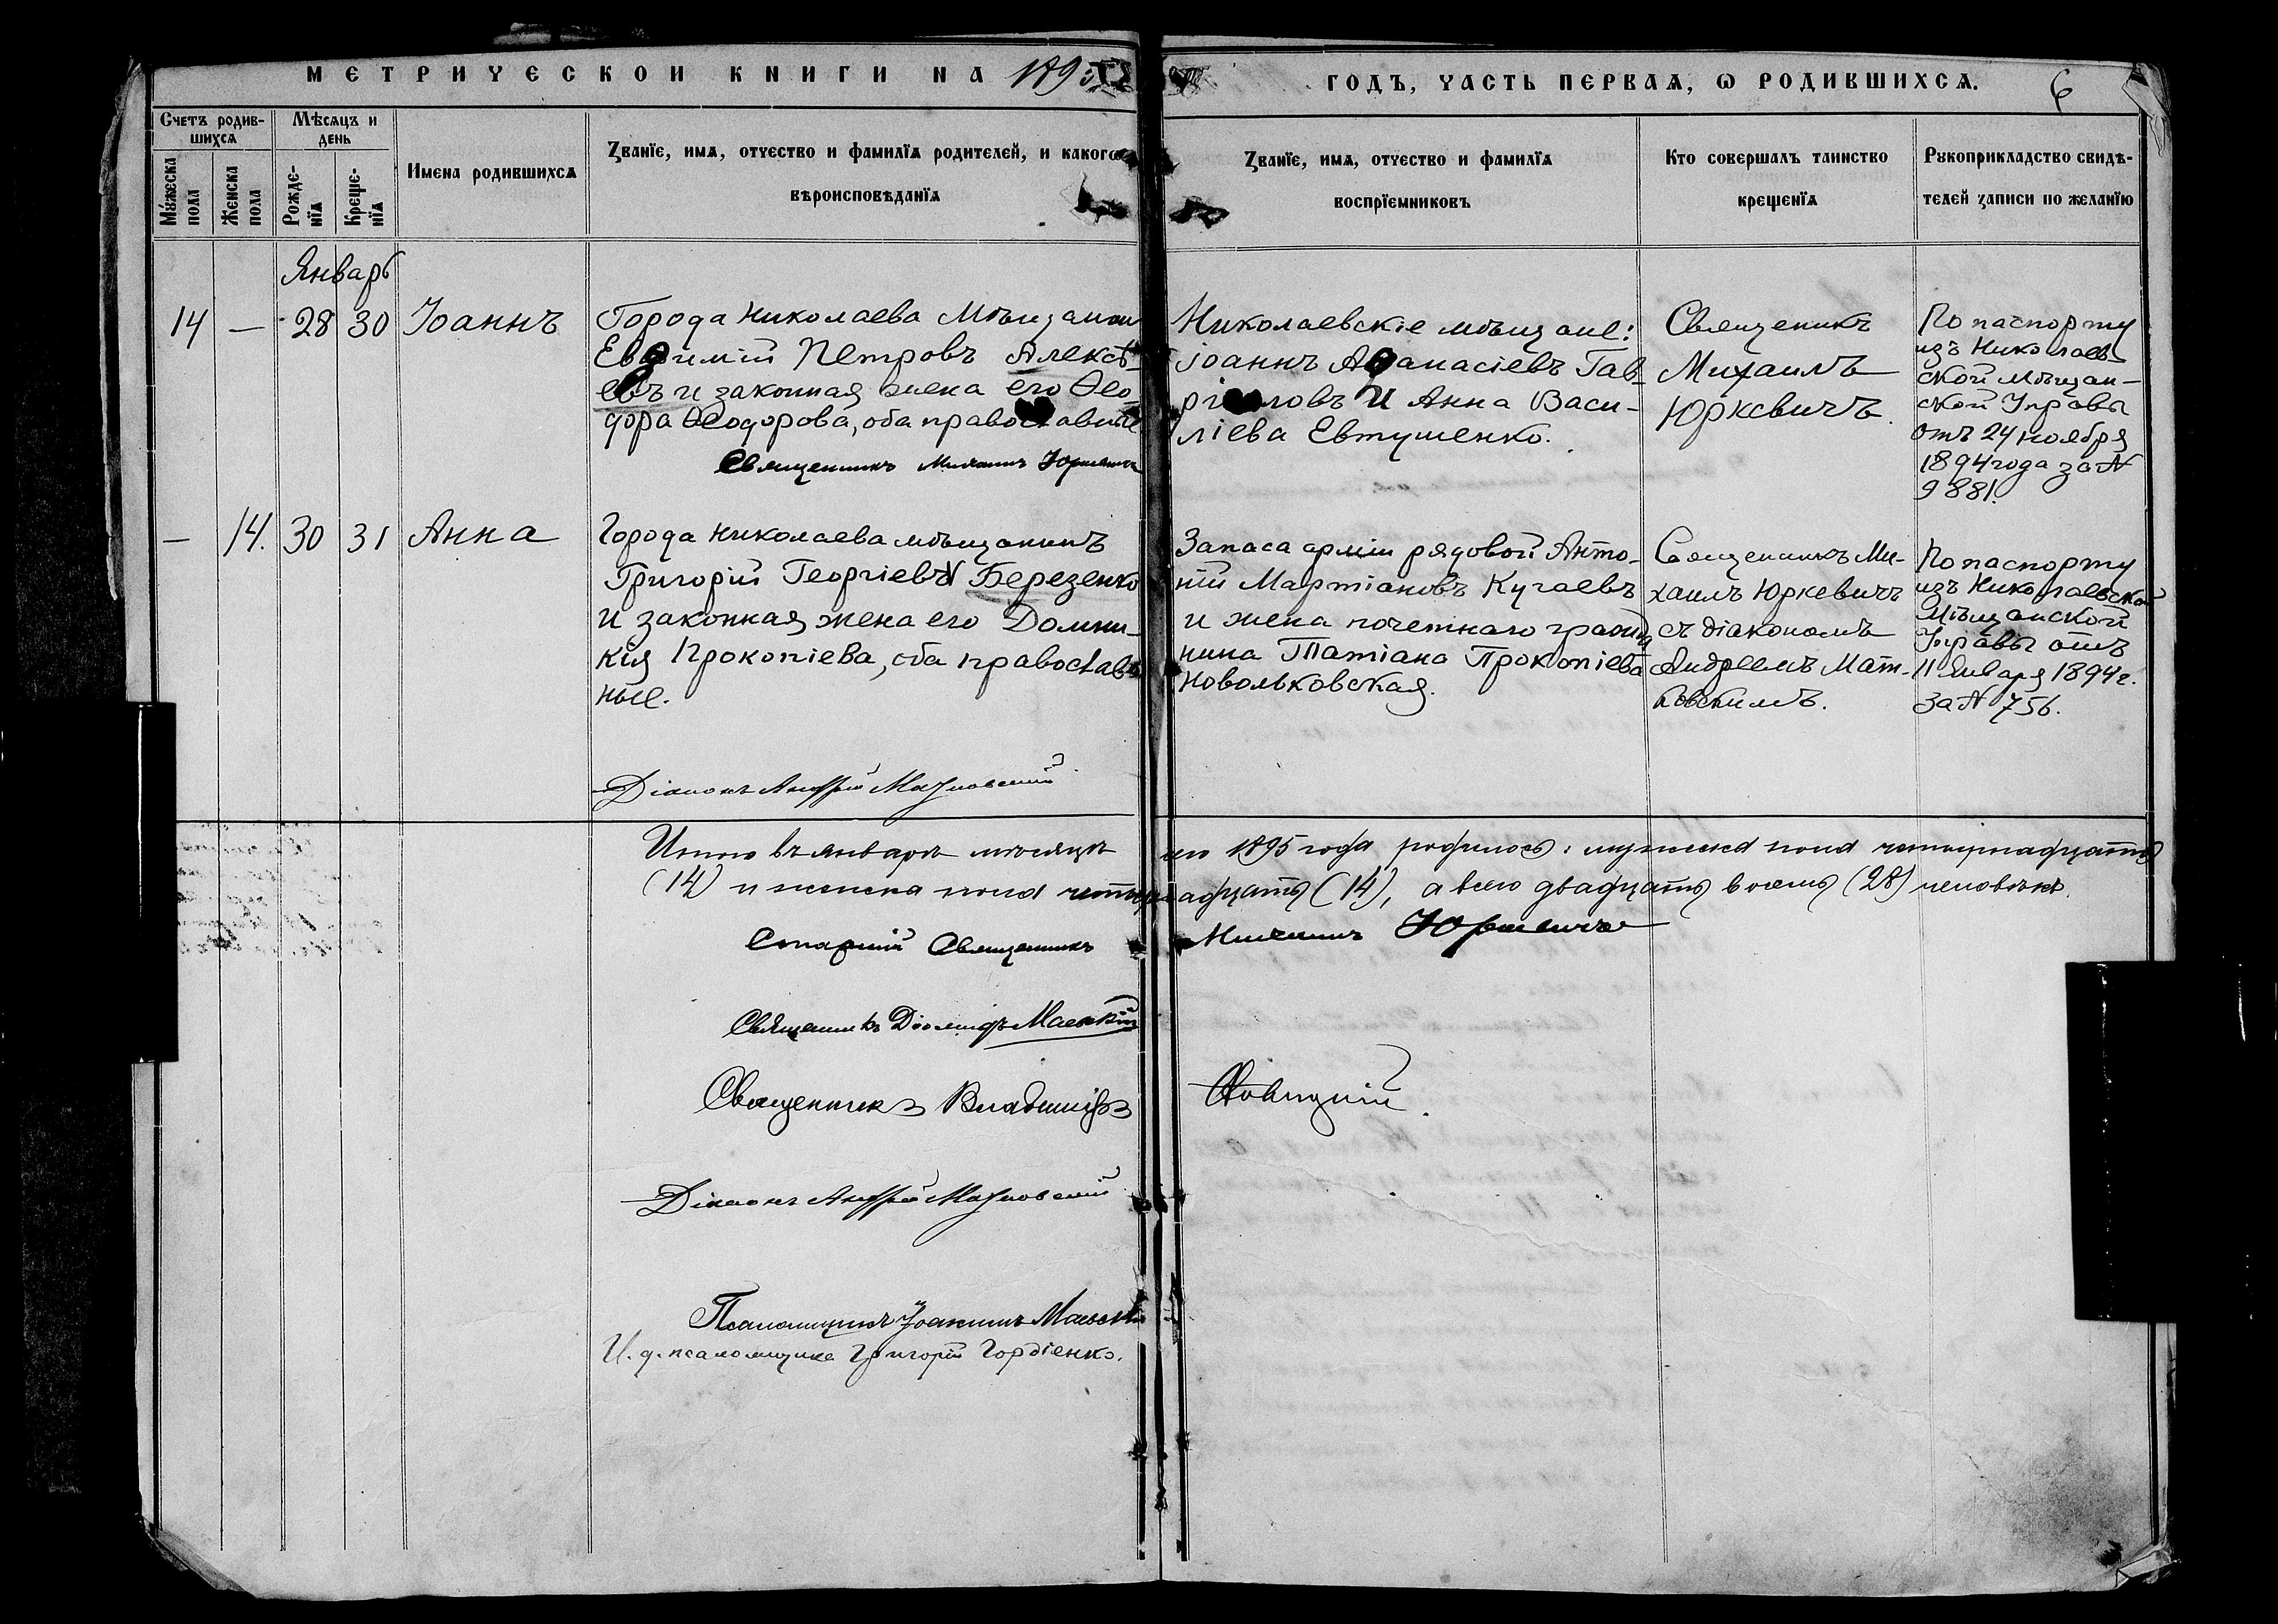 МЕТРИЧЕСКОЙ КНИГИ НА 1895
ГОДЪ, ЧАСТЬ ПЕРВАЯ, Ѡ РОДИВШИХСЯ.
6
Счетъ родив-
шихся
Мѣсяцъ и
день
Мꙋжеска
пола
Женска
пола
Рожде-
нїя
Креще-
нїя
Имена родившихся
Званїе, имя, отчество и фамилїя родителей, и какого
вѣроисповѣданїя
Званїе, имя, отчество и фамилїя
воспрїемниковъ
Кто совершалъ таинство
крещенїя
Рꙋкоприкладство свидѣ-
телей записи по желанїю
Январь
14
—
28
30
Іоаннъ
Города Николаева Мѣщанин
Евѳимій Петровъ Алексѣ-
евъ и законная жена его Ѳео-
дора Ѳеодорова, оба православные
Священникъ Михаилъ Юркевичъ
Николаевскіе мѣщане:
Іоаннъ Аѳанасіевъ Гав-
риловъ и Анна Васи-
ліева Евтушенко.
Священикъ
Михаилъ
Юркевичъ.
По паспорту
изъ Николаев
ской Мѣщан-
ской Управы
отъ 24 ноября
1894 года за №
9881.
—
14.
30
31
Анна
Города Николаева мѣщанинъ
Григорій Георгіевъ Березенко
и законная жена его Домни-
кія Прокопіева, оба православ-
ные.
Діаконъ Андрей Матковскій
Запаса арміи рядовой Анто-
ній Мартіановъ Кугаевъ
и жена почетнаго гражда
нина Татіана Прокопіева
Новольковская.
Священникъ Ми-
хаилъ Юркевичъ
съ діакономъ
Андреемъ Мат-
ковскимъ.
По паспорту
изъ Николаевской
Мѣщанской
Управы отъ
11 Января 1894 г.
за № 756.
Итого въ январѣ мѣсяцѣ 1895 года родилось: мужеска пола четырнадцать
(14) и женска пола четырнадцать (14), а всего двадцать восемь (28) человѣкъ.
Старшій Священникъ Михаилъ Юркевичъ
Священникъ Діомидъ Маевскій
Священникъ Владиміръ Новицкій.
Діаконъ Андрей Матковскій
Псаломщикъ Іоакимъ
И. д. псаломщика Григорій Гордіенко.